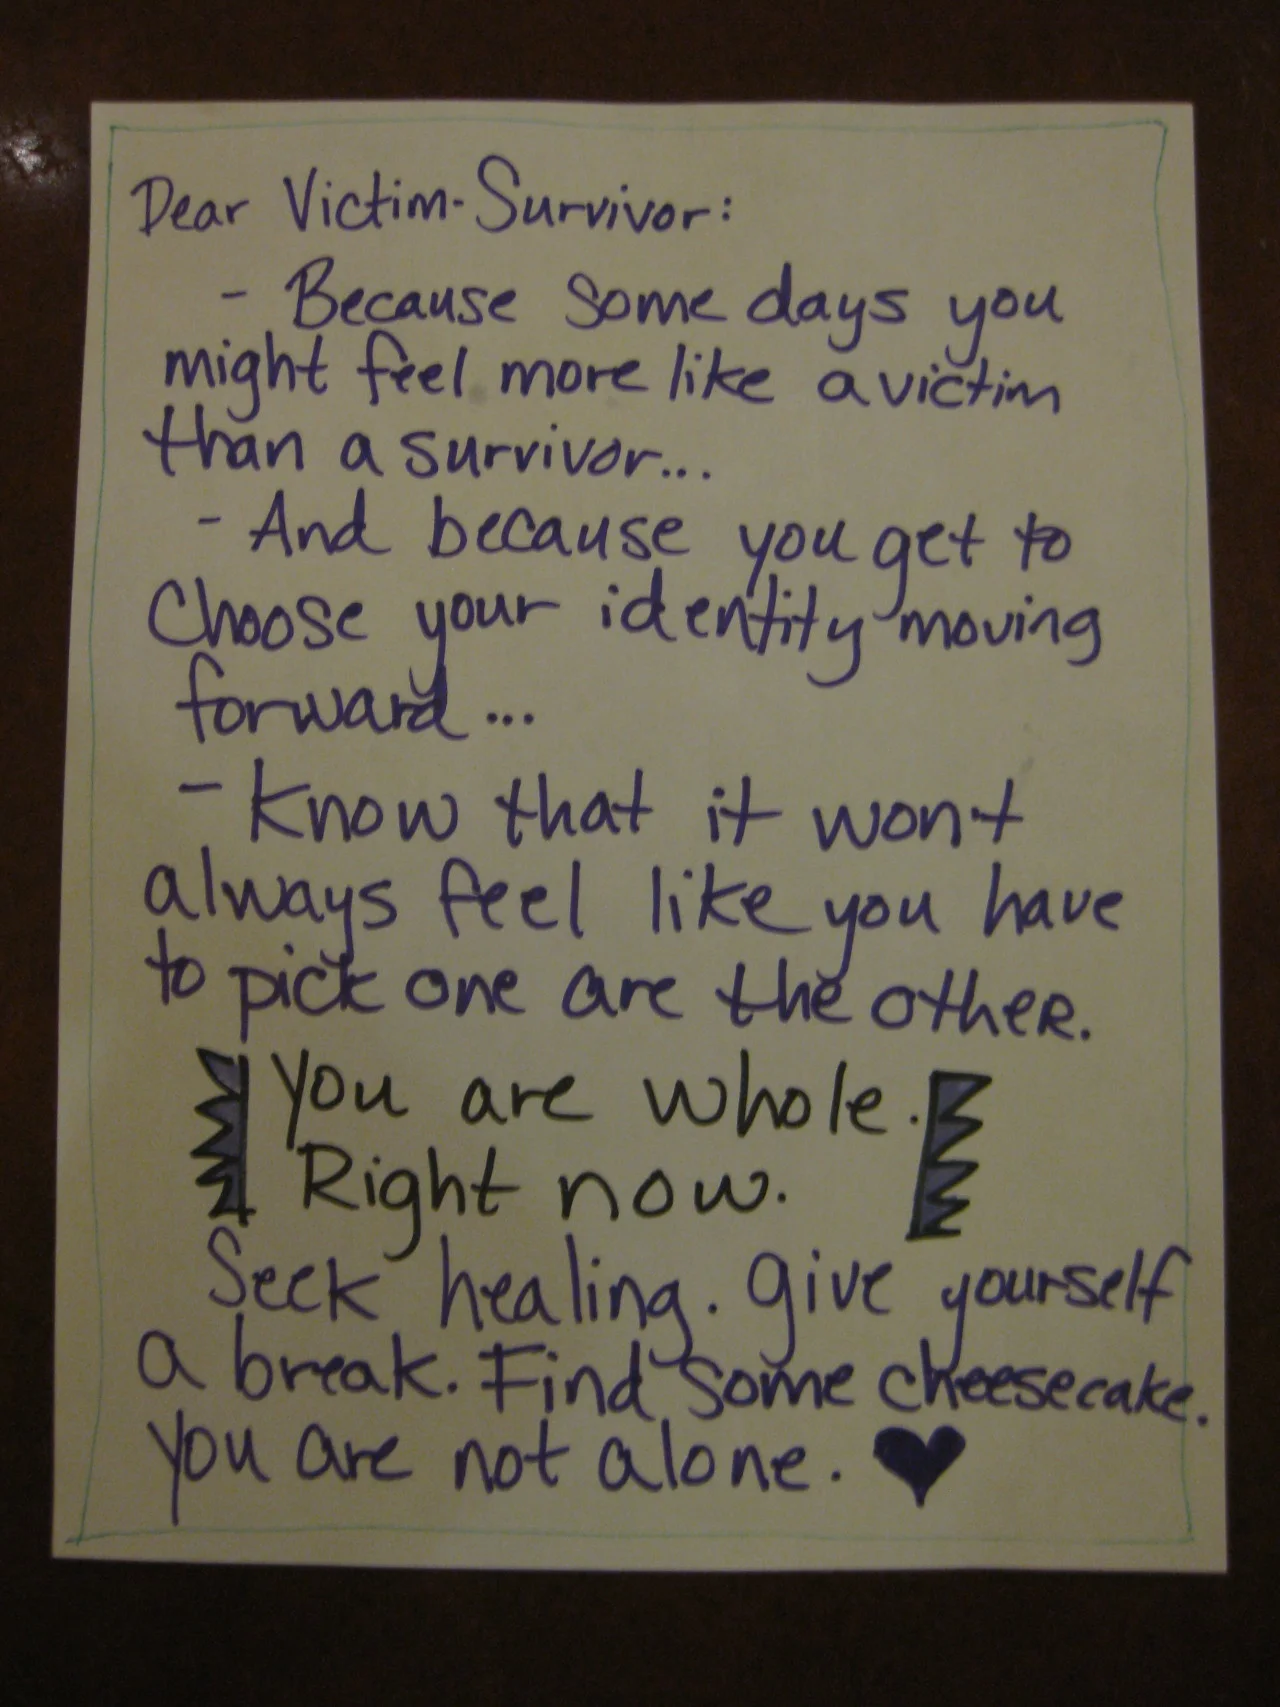 Dear Victim-Survivor:
- Because some days you
might feel more like a victim
than a survivor...
- And because you get to
Choose your identity moving
forward...
- Know that it won't
always feel like you have
to pick one are the other.
You are whole.
Right now.
Seek healing. Give yourself
a break. Find some cheesecake.
You are not alone. ♥